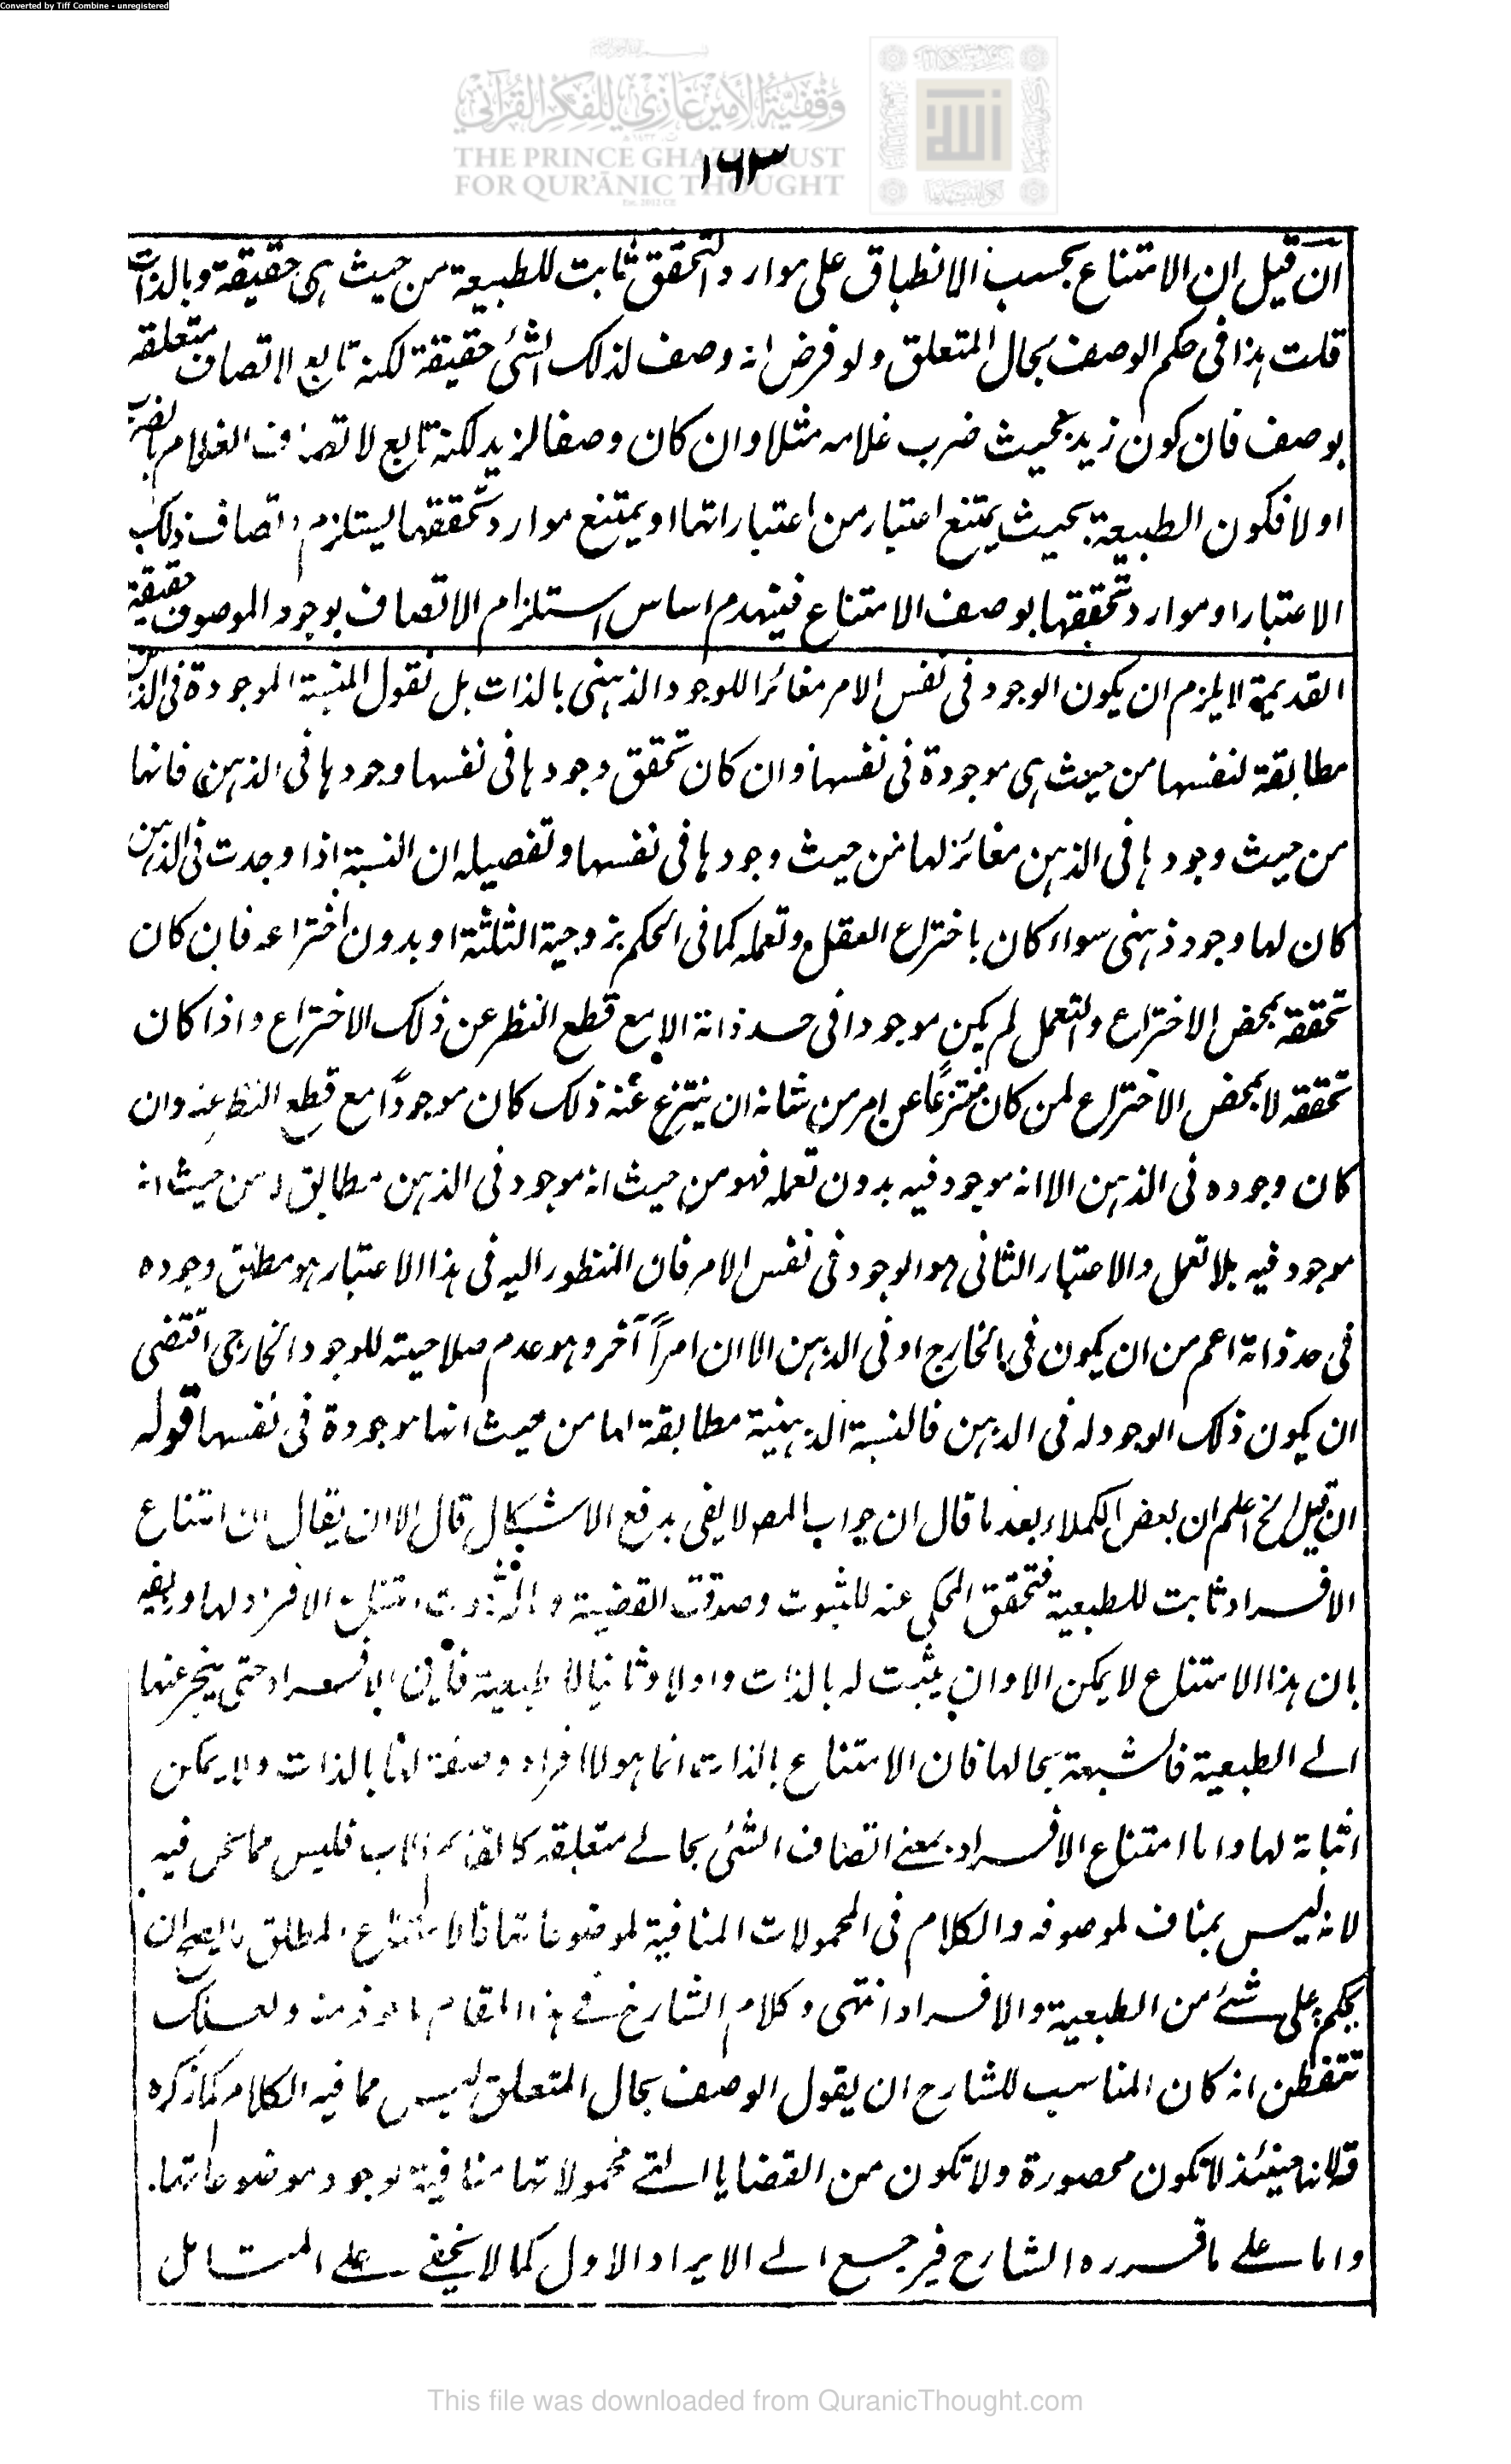 Converted by Tiff Combine - unregistered
وقفية الأمير غازي للفكر القرآني
THE PRINCE GHAZI TRUST
FOR QUR'ĀNIC THOUGHT
١٦٣
ان قيل ان الامتناع بحسب الانطباق على موارد التحقق ثابت للطبيعة من حيث هى حقيقة وبالذات
قلت هذا فى حكم الوصف بحال المتعلق ولو فرض انه وصف لذلك الشئ حقيقة لكنه تابع لاتصاف متعلقه
بوصف فان كون زيد بحيث ضرب غلامه مثلا وان كان وصفا لزيد لكنه تابع لاتصاف الغلام بالضرب
اولا فكون الطبيعة بحيث يمتنع اعتبار من اعتباراتها او يمتنع موارد تحققها يستلزم اتصاف ذلك
الاعتبار او موارد تحققها بوصف الامتناع فينهدم اساس استلزام الاتصاف بوجود الموصوف حقيقة
القديمة لا يلزم ان يكون الوجود فى نفس الامر مغائرا للوجود الذهنى بالذات بل نقول النسبة الموجودة فى الذهن
مطابقة لنفسها من حيث هى موجودة فى نفسها وان كان تحقق وجودها فى نفسها وجودها فى الذهن فانها
من حيث وجودها فى الذهن مغائر لها من حيث وجودها فى نفسها وتفصيله ان النسبة اذا وجدت فى الذهن
كان لها وجود ذهنى سواء كان باختراع العقل وتعمله كما فى الحكم بزوجية الثلثة او بدون اختراعه فان كان
تحققه بمحض الاختراع والتعمل لم يكن موجودا فى حد ذاته الا مع قطع النظر عن ذلك الاختراع واذا كان
تحققه لا بمحض الاختراع لمن كان منتزعًا عن امر من شانه ان ينتزع عنه ذلك كان موجودًا مع قطع النظر عنه وان
كان وجوده فى الذهن الا انه موجود فيه بدون تعمله فهو من حيث انه موجود فى الذهن مطابق له من حيث انه
موجود فيه بلا تعمل والاعتبار الثانى هو الوجود فى نفس الامر فان المنظور اليه فى هذا الاعتبار هو مطلق وجوده
فى حد ذاته اعم من ان يكون فى الخارج او فى الذهن الا ان امراً آخر وهو عدم صلاحيته للوجود الخارجى اقتضى
ان يكون ذلك الوجود له فى الذهن فالنسبة الذهنية مطابقة لها من حيث انها موجودة فى نفسها قوله
ان قيل الخ اعلم ان بعض الكملاء بعد ما قال ان جواب المصـ لا يفى بدفع الاشكال قال الا ان يقال ان امتناع
الافراد ثابت للطبيعة فتحقق المحكى عنه للثبوت وصدقت القضية و امتناع الافراد لها
بان هذا الامتناع لا يمكن الا وان يثبت له بالذات واولا وثانيا للطبيعة الافراد حتى ينجر عنها
الى الطبيعة فالشبهة بحالها فان الامتناع بالذات انما هو للافراد وصفة لها بالذات ولا يمكن
اثباته لها واما امتناع الافراد بمعنى اتصاف الشئ بحال متعلقه فليس مما نحن فيه
لانه ليس بمناف لموصوفه والكلام فى المحمولات المنافية لموضوعاتها فالامتناع المطلق ان
يحكم على شئ من الطبيعة والافراد انتهى وكلام الشارح فى هذا المقام ماخوذ منه ولعلك
تتفطن انه كان المناسب للشارح ان يقول الوصف بحال المتعلق ليس مما فيه الكلام كما ذكره
حينئذ لا تكون محصورة ولا تكون من القضايا التى محمولاتها منافية لوجود موضوعاتها.
واما على ما قرره الشارح فيرجع الى الايراد الاول كما لا يخفى على المتامل
This file was downloaded from QuranicThought.com